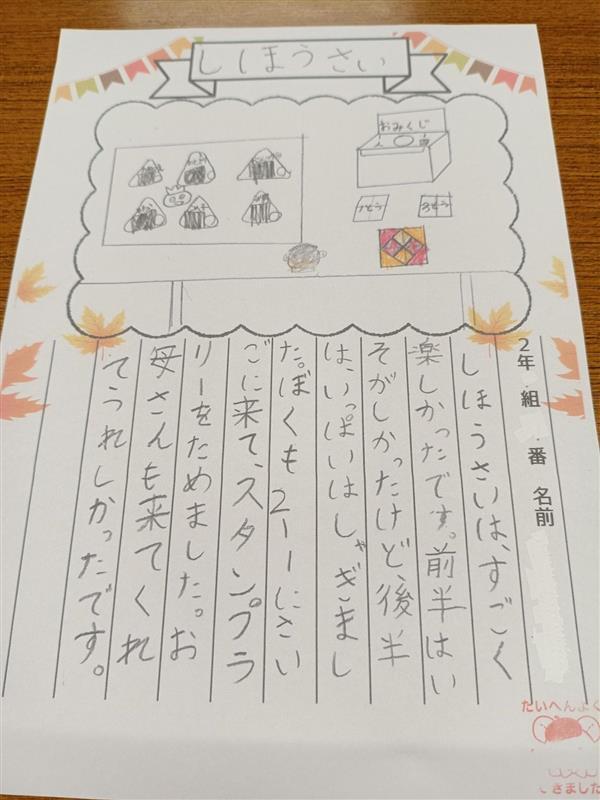 しほうさい
おみくじ
2年 組 番 名前
しほうさいは、すごく
楽しかったです。前半はい
そがしかったけど、後半
は、いっぱいはしゃぎまし
た。ぼくも2ー1にさい
ごに来て、スタンプラ
リーをためました。お
母さんも来てくれ
てうれしかったです。
たいへんよく
できました